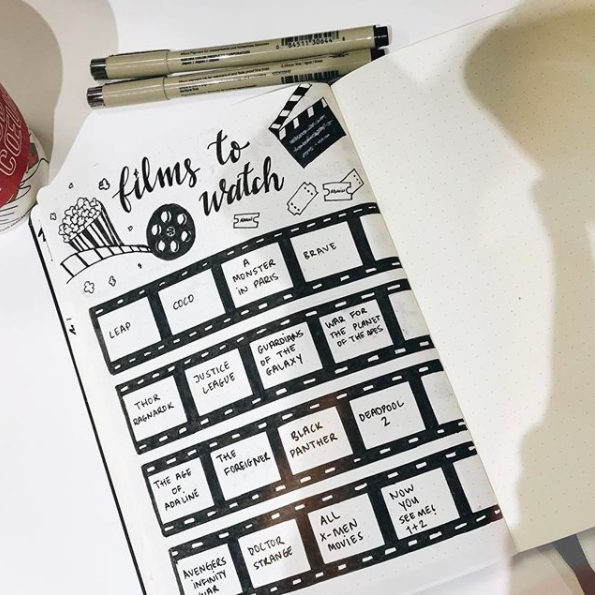 0 84511 30644 6
films to
watch
LEAP
COCO
A
MONSTER
IN PARIS
BRAVE
THOR
RAGNAROK
JUSTICE
LEAGUE
GUARDIANS
OF THE
GALAXY
WAR FOR
THE PLANET
OF THE APES
THE AGE
OF
ADALINE
THE
FOREIGNER
BLACK
PANTHER
DEADPOOL
2
AVENGERS
INFINITY
WAR
DOCTOR
STRANGE
ALL
X-MEN
MOVIES
NOW
YOU
SEE ME!
1+2